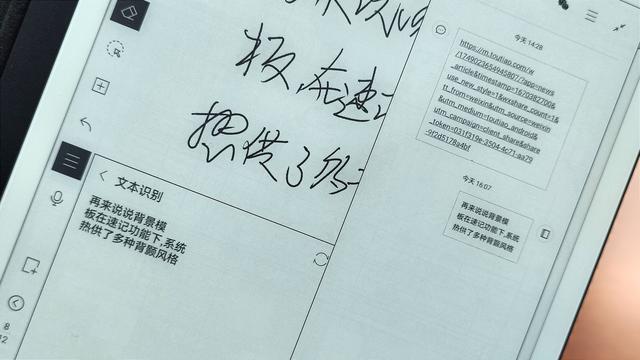 板在速记
提供了多
文本识别
再来说说背景模
板在速记功能下,系统
热供了多种背颢风格
8
12
今天 14:28
https://m.toutiao.com/w
/1749023654945807/?app=news
_article&timestamp=1670382700&
use_new_style=1&wxshare_count=1&
tt_from=weixin&utm_source=weixin
&utm_medium=toutiao_android&
utm_campaign=client_share&share
_token=031f319e-3504-4c71-aa79
-9f2d5178a4bf
今天 16:07
再来说说背景模
板在速记功能下,系统
热供了多种背颢风格